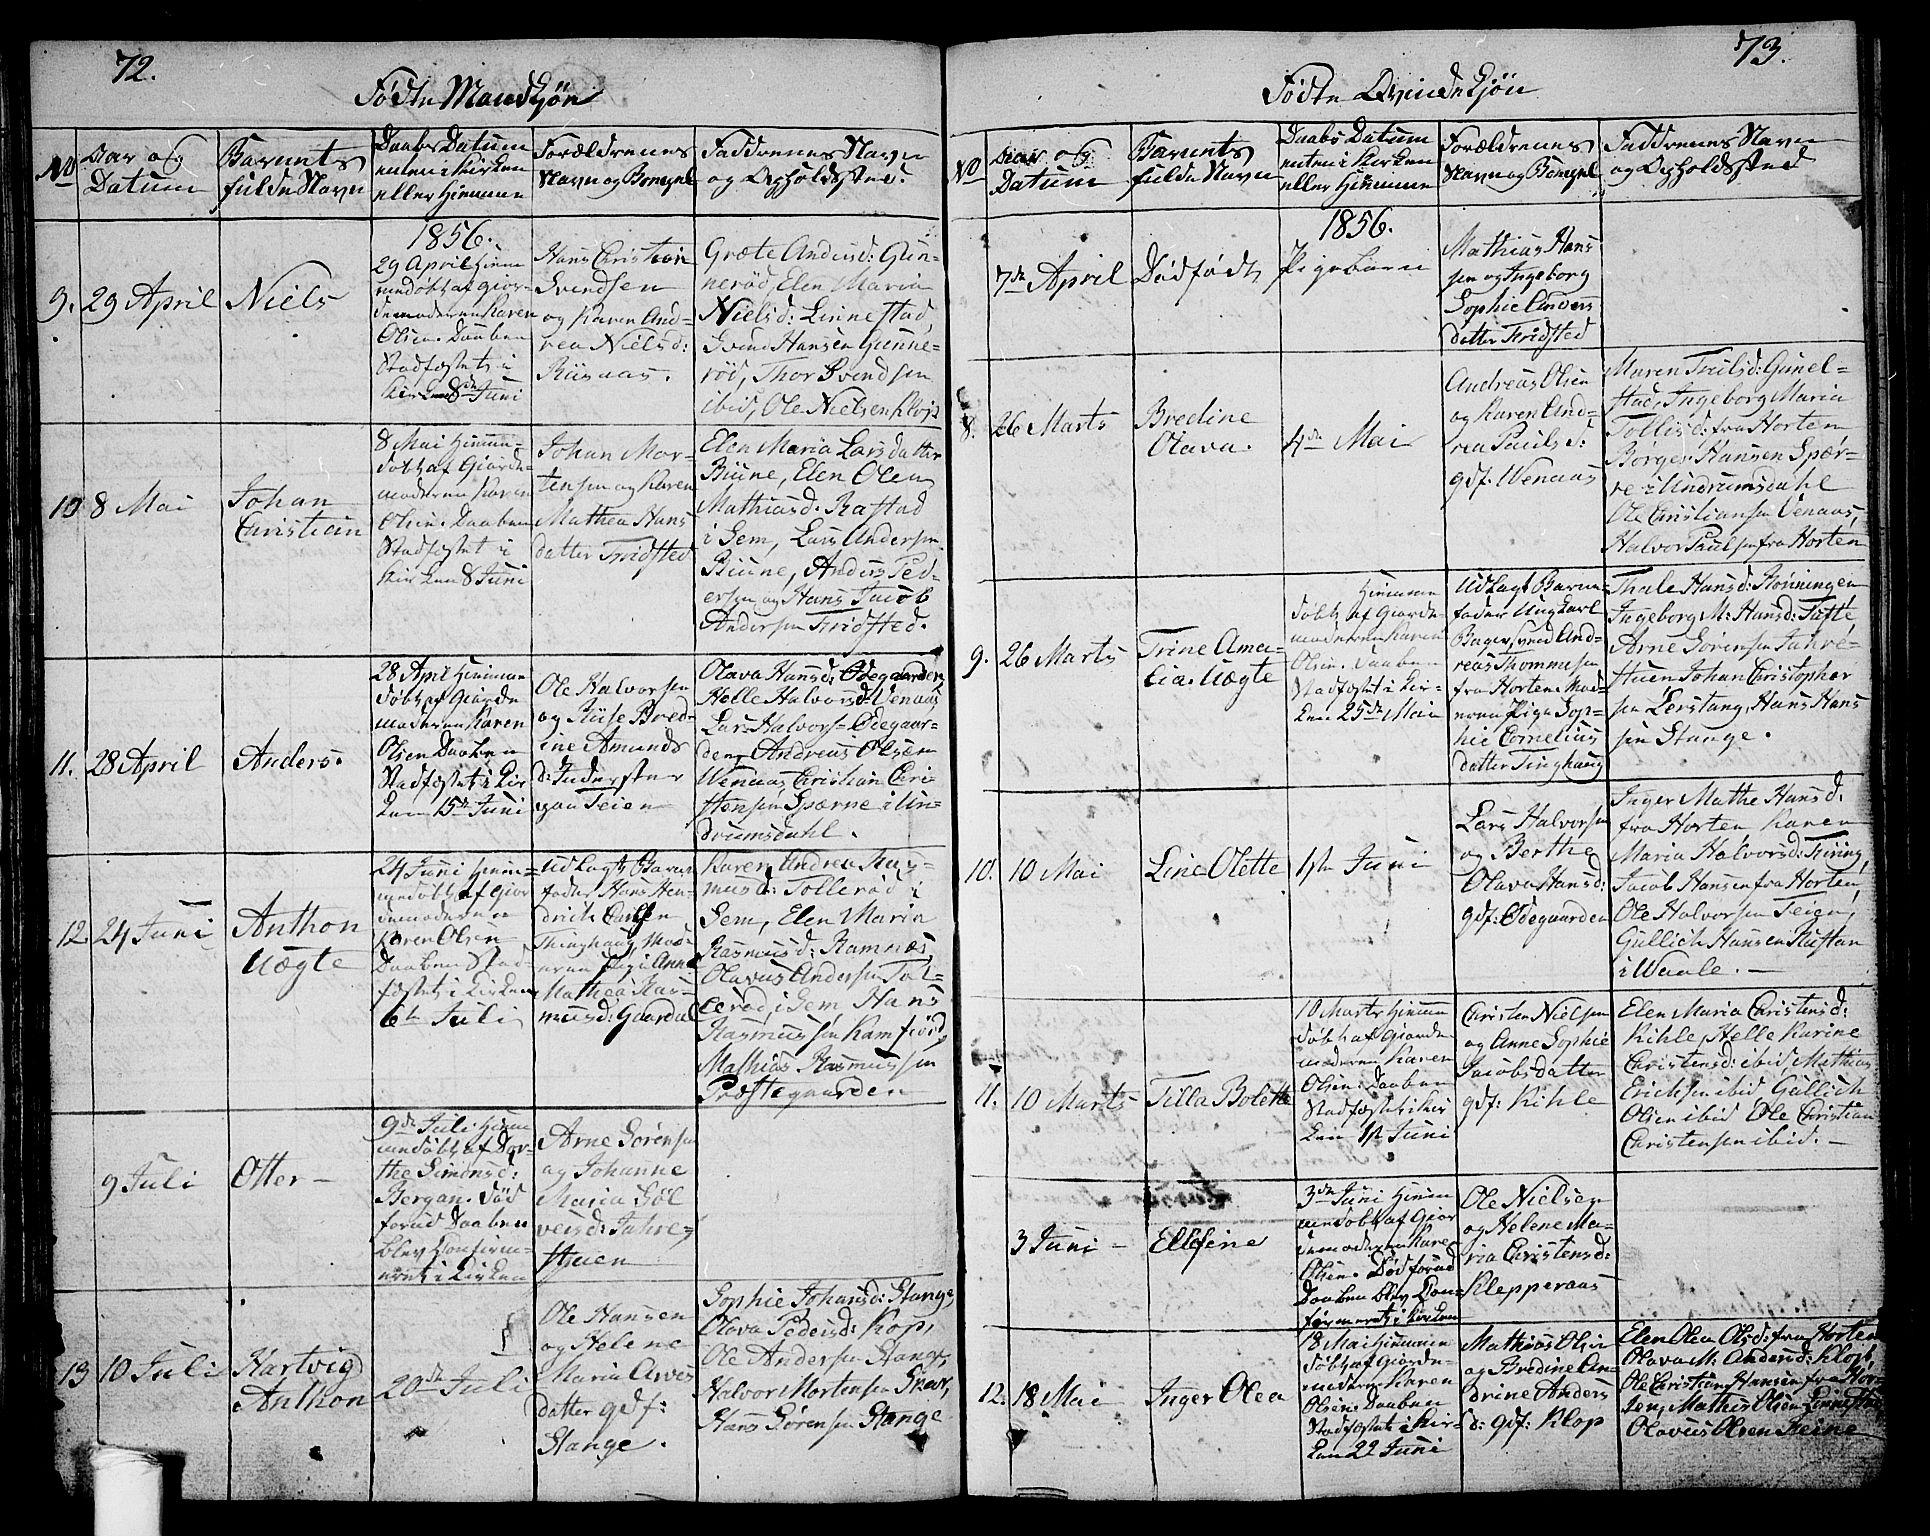 72.
Födte Mandkjön
No
Aar og
Datum
Barnets
fulde Navn
Daabs Datum
enten i Kirken
eller Hjemme
Forældrenes
Navn og Bopæl
Faddrenes Navn
og Opholdsted
9.
29 April
Niels
1856.
29 April Hjem
medöbt af Gjor-
demoderen Karen
Olsen. Daaben
Stadfæstet i
Kirken 8de Juni
Hans Christian
Svendsen
og Karen And-
rea Nielsd:
Riisaas.
Græte Andersd: Gun-
neröd, Elen Maria
Nielsd: Linnestad,
Svend Hansen Gunne-
röd, Thor Svendsen
ibid, Ole Nielsen Klop
10
8 Mai
Johan
Christian
8 Mai Hjemme-
döbt af Giorde-
moderen Karen
Olsen. Daaben
Stadfæstet i
Kirken 8 Juni
Johan Mor-
tensen og Karen
Mathea Hans
datter Fridsted
Elen Maria Larsdatter
Biune, Elen Olea
Mathiasd: Rastad
i Sem, Lars Andersen
Biune, Anders Ped-
ersen og Hans Jacob
Andersen Fridsted.
11.
28 April
Anders.
28 April Hjemme
döbt af Giorde
moderen Karen
Olsen Daaben
Stadfæstet i Kir
ken 15de Juni
Ole Halvorsen
og Riise Bred-
ine Amunds
d: Inderster
gaa Teien
Olava Hansd: Ödegaarden,
Helle Halvorsd: Venaas
Lars Halvors: Ödegaar-
den, Andreas Olsen
Wenaas Christian Chri-
stensen Spærne i Un-
drumsdahl.
12.
24 Juni
Anthon
Uægte
24 Juni Hjem-
medöbt af Gjor
demoderen
Karen Olsen
Daaben Stad-
fæstet i Kirken
6te Juli
Udlagt Barne
fader Hans Hen-
drich Carlsen
Thinghaug Mod-
eren Pige Anne
Mathea Ras-
musd: Gaardal
Karen Andrea Ras-
musd: Tolleröd i
Sem, Elen Maria
Rasmusd: Ramnæs,
Olavus Andersen Tol-
leröd i Sem Hans
Rasmussen Ramfiord,
Mathias Rasmussen
Præstegaarden
9 Juli
Otter –
9de Juli Hjem
medöbt af Dor-
thee Simonsd:
Bergan. Död
forud Daaben
blev Confirm-
eret i Kirken
Arne Sörensen
og Johanne
Maria Söl
versd: Fahre-
stuen
13
10 Juli
Hartvig
Anthon
20de Juli
Ole Hansen
og Helene
Maria Arves
datter gdf:
Stange.
Sophie Johansd: Stange,
Olava Pedersd: Kop,
Ole Andersen Stange,
Halvor Mortensen Skar,
Hans Sörensen Stange
73.
Födte Qvindekjön
No
Aar og
Datum
Barnets
fulde Navn
Daabs Datum
enten i Kirken
eller Hjemme
Forældrenes
Navn og Bopæl
Faddrenes Navn
og Opholdsted
7de April
Dödfödt
1856.
Pigebarn
Mathias Hans
sen og Ingeborg
Sophie Anders
datter Fridsted
8.
26 Marts
Bredine
Olava.
4de Mai
Andreas Olsen
og Karen And-
rea Paulsd:
gdf. Wenaas
Maren Troilsd: Gunel-
stad, Ingeborg Maria
Tollisd: fra Horten
Borger Hansen Spær-
re i Undrumsdahl
Ole Christiansen Venaas,
Halvor Paulsen fra Horten
9.
26 Marts
Trine Ama-
lia. Uægte
Hjemme
döbt af Giorde
moderen Karen
Olsen. Daaben
Stadfæstet i Kir-
ken 25de Mai
Udlagt Barne-
fader Ungkarl
Bagersvend And-
reas Thommesen
fra Horten. Mod-
eren Pige Sop-
hie Cornelius
datter Tinghaug
Thale Hansd: Rönningen
Ingeborg M: Hansd: Tufte
Arne Sörensen Fahre-
stuen Johan Christopher
sen Lerstang, Hans Hans
sen Stange.
10.
10 Mai
Line Olette
1ste Juni
Lars Halvorsen
og Berthe
Olava Hansd:
gdf: Ödegaarden
Inger Mathe Hansd:
fra Horten Karen
Maria Halvorsd:
Jacob Hansen fra Horten,
Ole Halvorsen Teien,
Gullich Hansen Rustan
i Waale. –
11.
10 Marts
Tilla Bolette
10 Marts Hjemme
döbt af Giorde
moderen Karen
Olsen. Daaben
Stadfæstet i Kir
ken 1ste Juni
Christen Nielsen
og Anne Sophie
Jacobsdatter
gdf: Kihle
Elen Maria Christensd:
Kihle, Helle Karine
Christensd: ibid, Mathias
Ericksen ibid Gullich
Olsen ibid Ole Christian
Christensen ibid. –
3 Juni –
Ellefine
3de Juni Hjem
medöbt af Gjor
demoderen Karen
Olsen. Död forud
Daaben blev Con-
firmeret i Kirken
Ole Nielsen
og Helene Ma-
ria Christensd:
Klepperaas
12.
18 Mai
Inger Olea
18 Mai Hjemme
döbt af Giorde-
moderen Karen
Olsen. Daaben
Stadfæstet i Kir-
ken 22 Juni
Mathias Olsen
og Bredine An-
drine Anders
d: gdf: Klop
Elen Olea Olsd: fra Horten
Olava M: Andersd: Klop,
Ole Christian Hansen fra Hor-
ten, Mathis Olsen Linnestad,
Olavus Olsen Reine